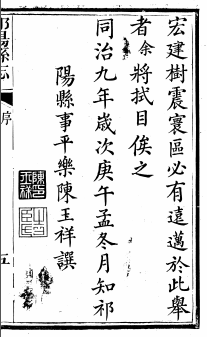 宏建樹震寰區必有遠邁於此舉
者余將拭目俟之
同治九年歲次庚午孟冬月知祁
陽縣事平樂陳玉祥譔
祁陽縣志
序
五